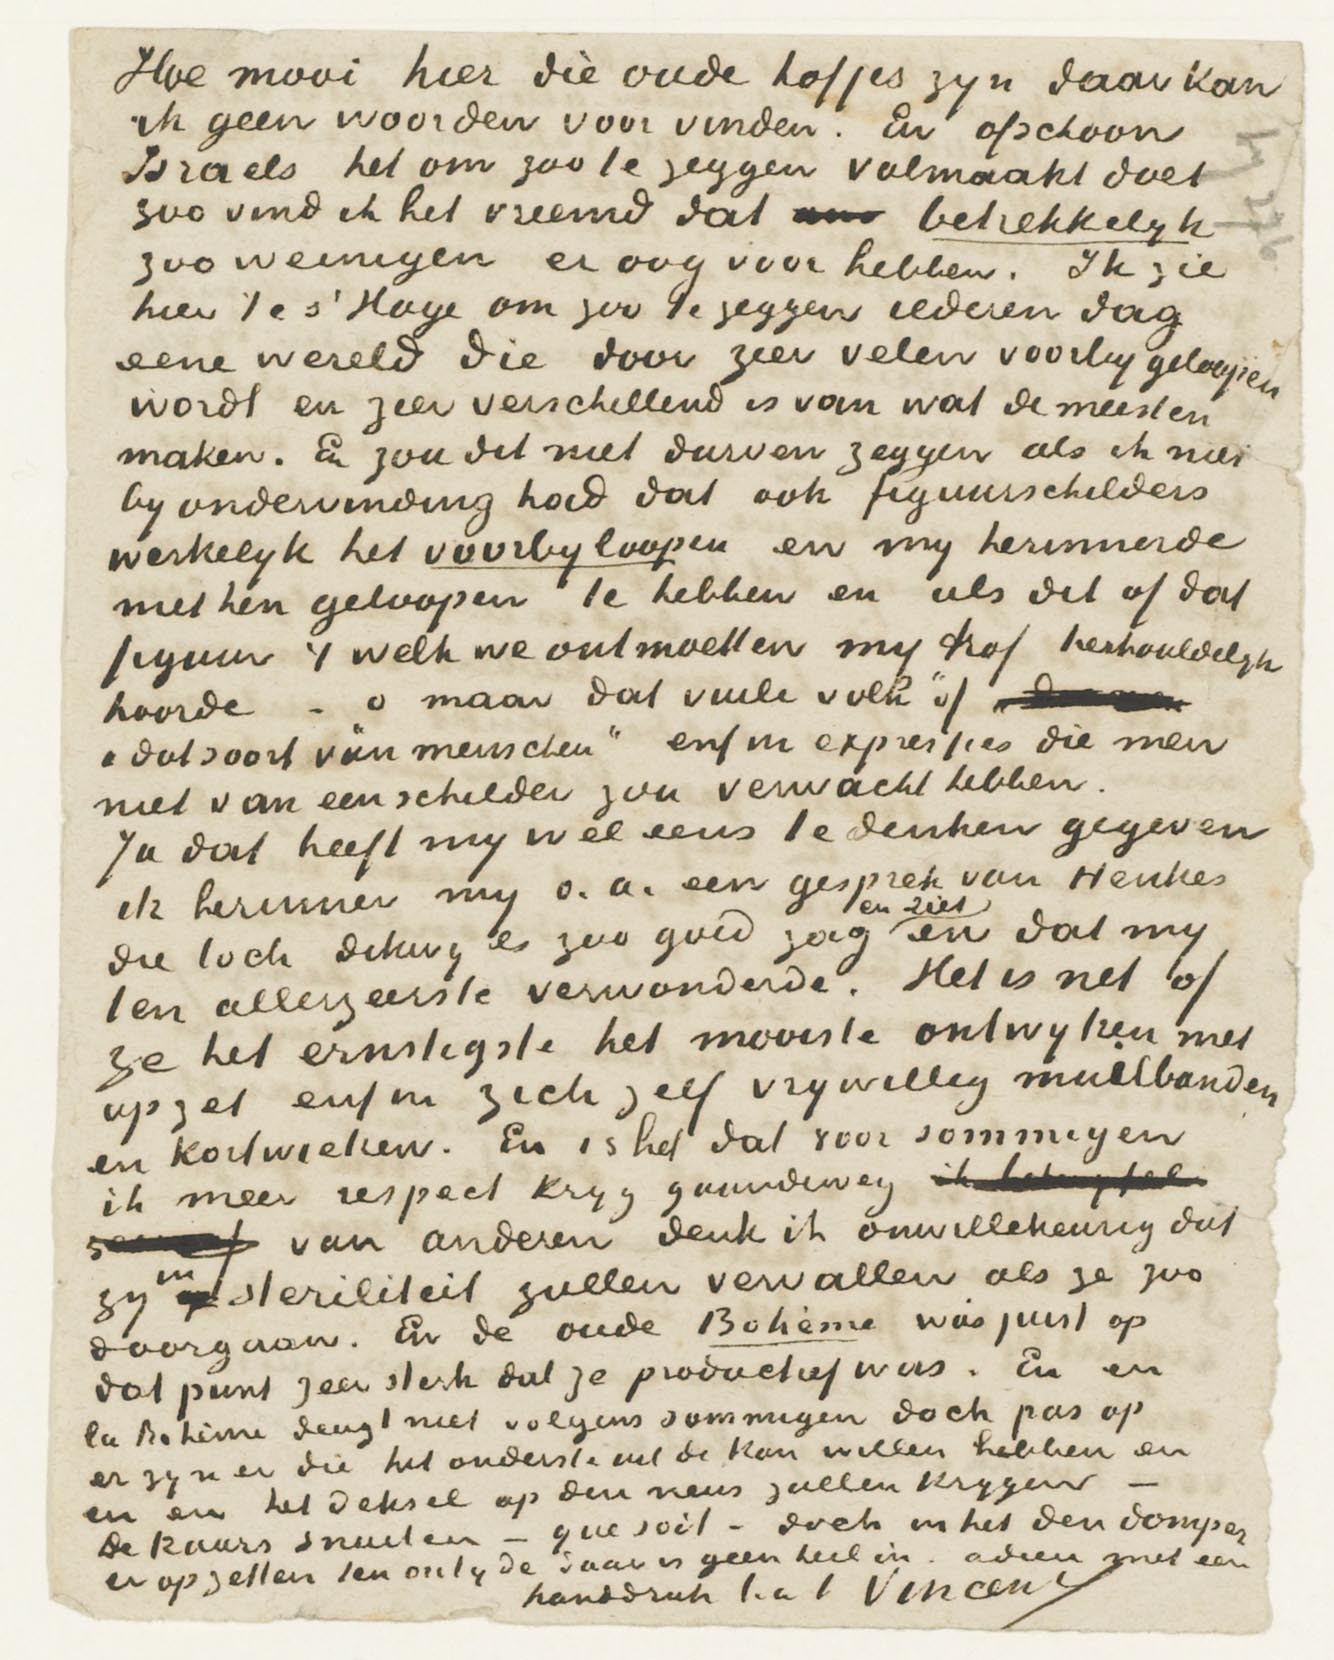 Hoe mooi hier die oude hofjes zyn daar kan
ik geen woorden voor vinden. En ofschoon
Israels het om zoo te zeggen volmaakt doet
zoo vind ik het vreemd dat betrekkelyk
zoo weinigen er oog voor hebben. Ik zie
hier te s'Hage om zoo te zeggen iederen dag
eene wereld die door zeer velen voorby geloopen
wordt en zeer verschillend is van wat de meesten
maken. En zou dit niet durven zeggen als ik niet
by ondervinding had dat ook figuurschilders
werkelyk het voorbyloopen en my herinnerde
met hen geloopen te hebben en als dit of dat
figuur 't welk we ontmoetten my trof herhaaldelyk
hoorde - o maar dat vuile volk" of
„dat soort van menschen" enfin expressies die men
niet van een schilder zou verwacht hebben.
Ja dat heeft my wel eens te denken gegeven
ik herinner my o.a. een gesprek van Henkes
die toch dikwyls zoo goed zag en ziet en dat my
ten allerzeerste verwonderde. Het is net of
ze het ernstigste het mooiste ontwyken met
opzet enfin zich zelf vrywillig muilbanden
en kortwieken. En is het dat voor sommigen
ik meer respect kryg gaandeweg
van anderen denk ik onwillekeurig dat
zy in steriliteit zullen vervallen als ze zoo
doorgaan. En de oude Bohème was juist op
dat punt zeer sterk dat ze productief was. En en
la Bohème deugt niet volgens sommigen doch pas op
er zyn er die het onderste uit de kan willen hebben en
en en het deksel op den neus zullen krygen —
de kaars snuiten — que soit - doch in het den domper
er op zetten ten ontyde daar is geen heil in. adieu met een
handdruk t. a t Vincent